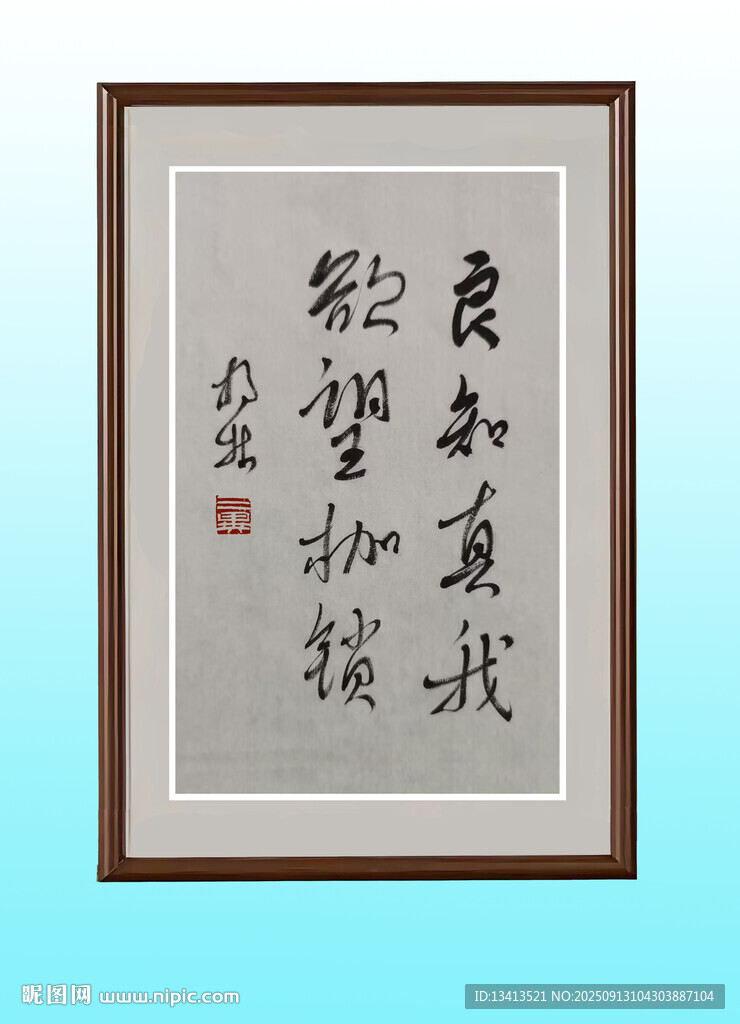 良知真我
欲望枷锁
昵图网 www.nipic.com
ID:13413521 NO:20250913104303887104